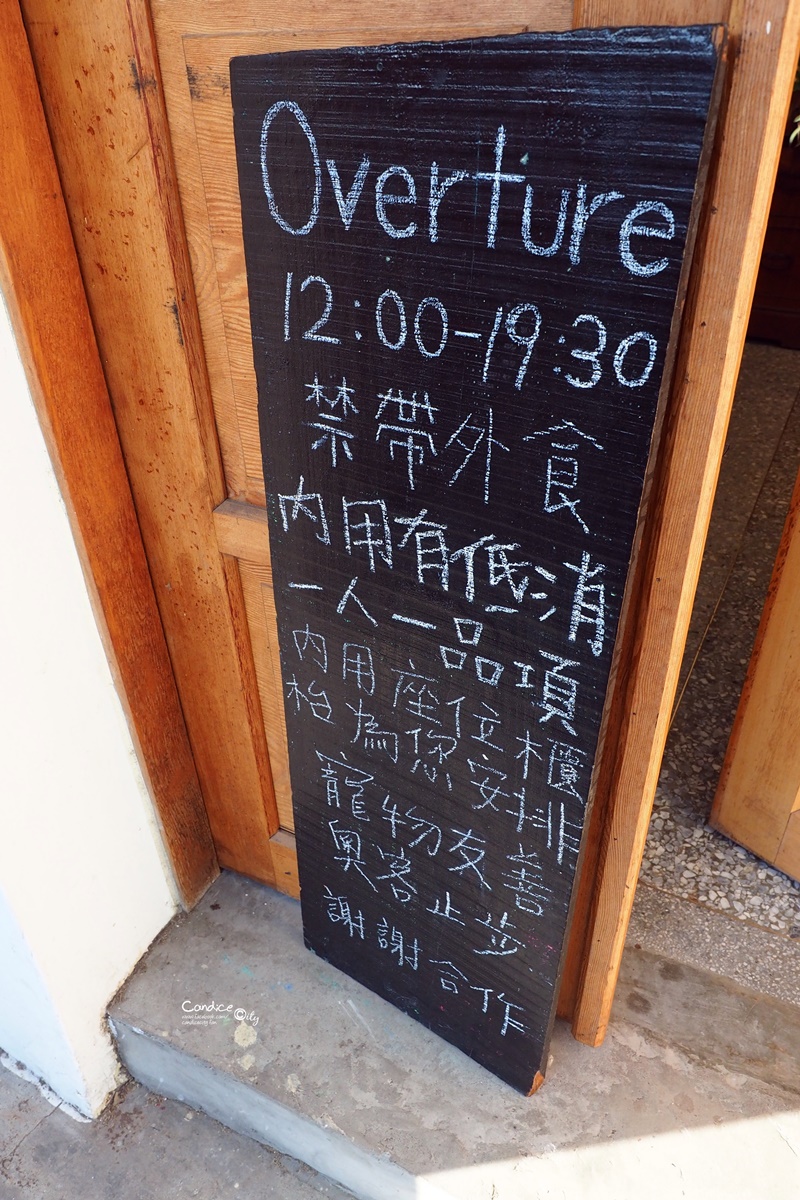 Overture
12:00-19:30
禁帶外食
內用有低消
一人一品項
內用座位櫃
枱為您安排
寵物友善
奧客止步
謝謝合作
Candice City
www.facebook.com/
candicecity.fan